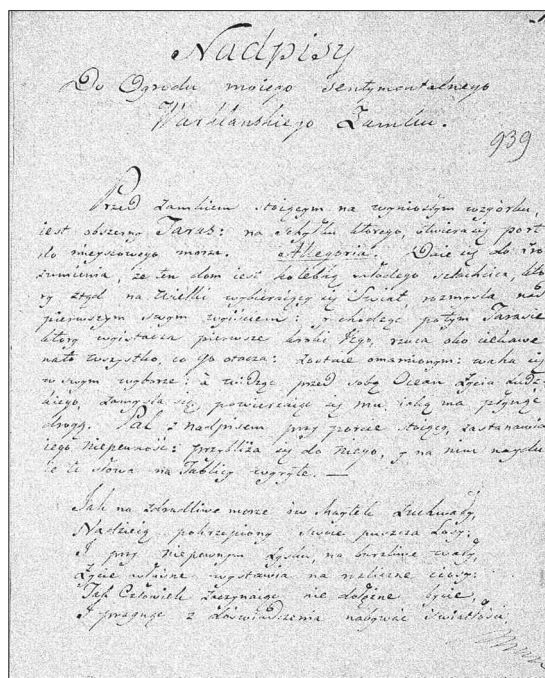 Nadpisy
Do Ogrodu mojego sentymentalnego
Warklańskiego Zamku.
939
Przed Zamkiem stojącym na wyniosłym wzgórku,
jest obszerny Taras: na schyłku którego, otwiera się port
do miejscowego morza. Allegoria. Daie się do zro
zumienia, że ten dom jest kolebką młodego szlachcica, któ
ry ztąd na Wielki wybierający się Świat rozmyśla nad
pierwszym swym wyjściem: y chodząc po tym Tarasie
który wytacza pierwsze kroki Jego, rzuca oko ciekawe
na to wszystko, co go otacza: zostaie omamionym: waha się
w swym wyborze: a widząc przed sobą Ocean Życia Ludz
kiego, zamyśla się, powierzając się mu, jaką ma płynąć
drogą. Pal z nadpisem przy porcie stojący, zastanawia
jego niepewność: przybliża się do niego, y na nim nayduj
ie te słowa na Tablicy wyryte. —
Jak na zdradliwe morze ów Żagteli zuchwały,
Nadzieią pokrzepiony swoie puszcza Losy:
I przy niepewnym zysku, na burzliwe wały,
Życie własne wystawia na nieliczne ciosy:
Tak Człowiek zaczynaiąc nie dołężne życie,
I pragnąc z doświadczenia nabywać światłości,